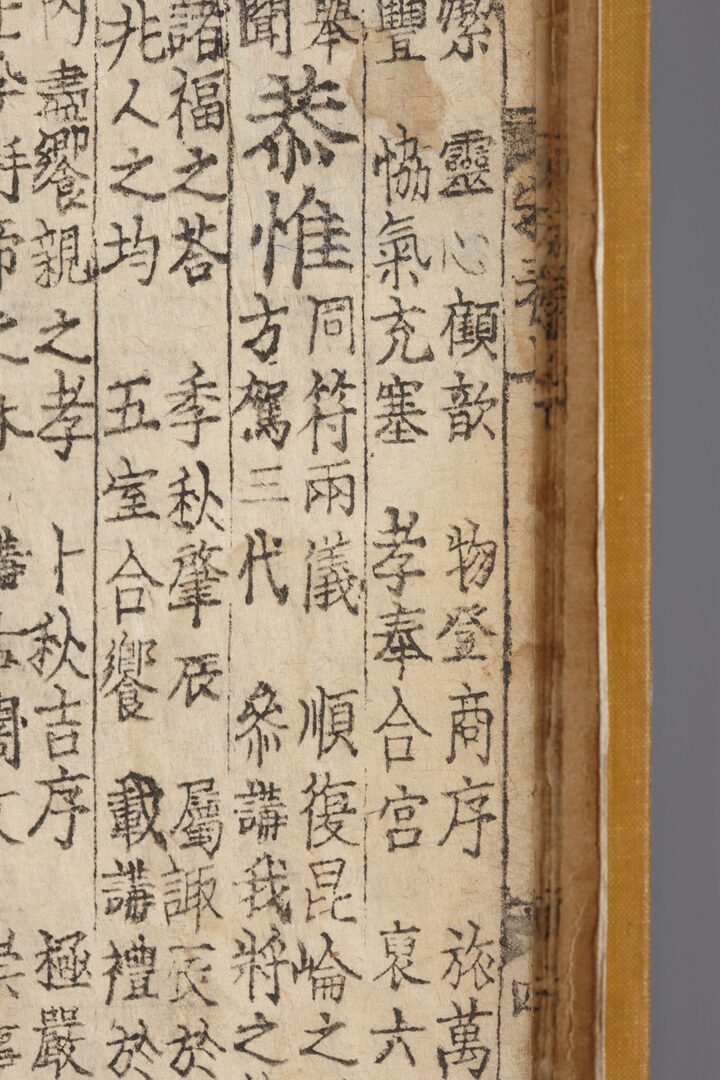 靈心顧歆 物登商序 旅萬
豐 恊氣充塞 孝奉合宮 裒六
舉
聞
恭惟
同符兩儀 順復昆崘之
方駕三代 叅講我將之
諸福之荅 季秋肇辰 屬諏辰於
兆人之均 五室合饗 載講禮於
内盡饗親之孝 卜秋吉序 極嚴